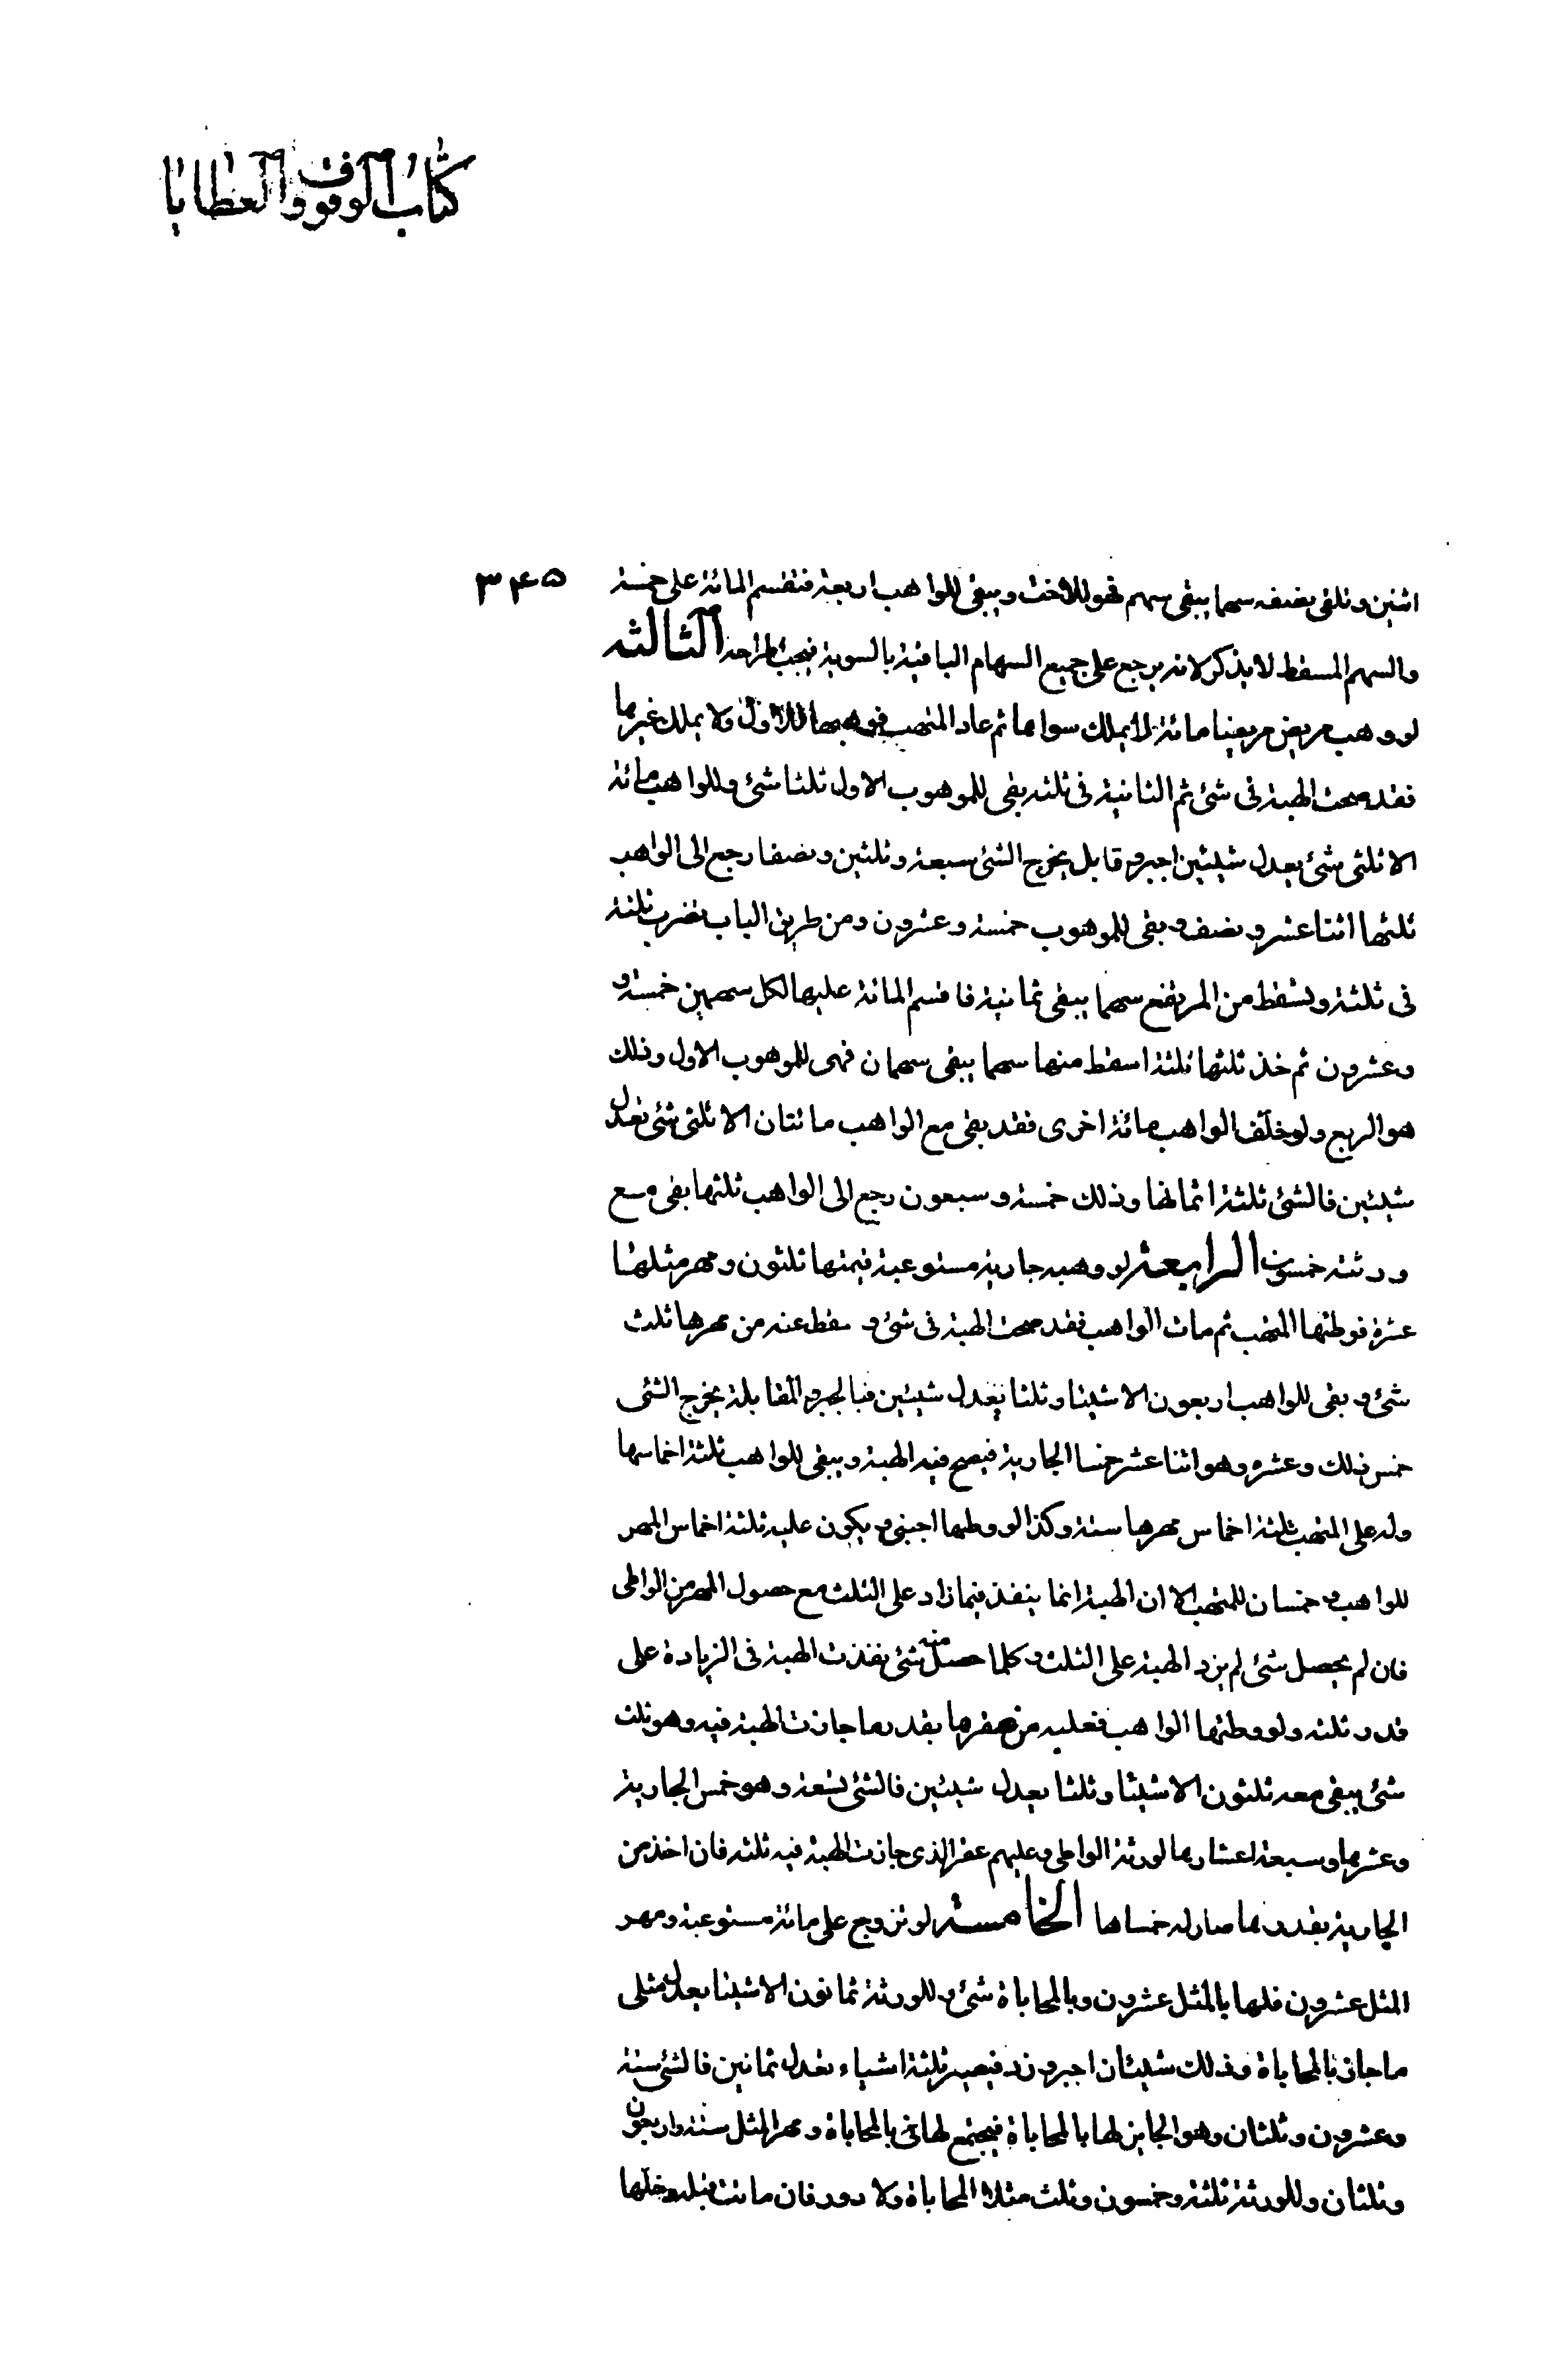 كتاب الوقوف والعطايا
٣۴۵
اثنين وتلقى بضفه سهما يبقى سهم فهو للاخت ويبقى للواهب اربعة فتقسم المائة على خمسة
والسهم المسقط لا يذكر لانه يرجع على جميع السهام الباقية بالسوية فيجب اطراحه الثالثه
لو وهب مريض مريضا مائة لا يملك سواها ثم عاد المتهب فوهبها للاول ولا يملك غيرها
فقد صحت الهبة فى شئ ثم الثانية فى ثلثه بقى للموهوب الاول ثلثا شئ وللواهب مائة
الا ثلثى شئ يعدل شيئين اجبر وقابل يخرج الشئ سبعة وثلثين ونصفا رجع الى الواهب
ثلثها اثنا عشر ونصف وبقى للموهوب خمسة وعشرون ومن طريق الباب تضرب ثلثة
فى ثلثة ويسقط من المرتفع سهما يبقى ثمانية فاقسم المائة عليها لكل سهمين خمسة و
وعشرون ثم خذ ثلثها ثلثة اسقط منها سهما يبقى سهمان فهى للموهوب الاول وذلك
هو الربع ولو خلّف الواهب مائة اخرى فقد بقى مع الواهب مائتان الا ثلثى شئ تعدل
شيئين فالشئ ثلثة اثمانها وذلك خمسة وسبعون رجع الى الواهب ثلثها بقى مع
ورثته خمسون الرابعة لو وهبه جارية مستوعبة قيمتها ثلثون ومهر مثلها
عشرة فوطئها المتهب ثم مات الواهب فقد صحت الهبة فى شئ و سقط عنه من مهرها ثلث
شئ و بقى للواهب اربعون الا شيئا وثلثا يعدل شيئين فبالجبر والمقابلة يخرج الشئ
خمس ذلك وعشره وهو اثنا عشر خمسا الجارية فيصح فيه الهبة ويبقى للواهب ثلثة اخماسها
وله على المتهب ثلثة اخماس مهرها ستة وكذا لو وطيها اجنبى ويكون عليه ثلثة اخماس المهر
للواهب وخمسان للمتهب الا ان الهبة انما ينفذ فيما زاد على الثلث مع حصول المهر من الواطى
فان لم يحصل شئ لم يزد الهبة على الثلث وكلما حصل منه شئ نفذت الهبة فى الزيادة على
قدر ثلثه ولو وطئها الواهب فعليه من عقرها بقدر ما جازت الهبة فيه وهو ثلث
شئ يبقى معه ثلثون الا شيئا وثلثا يعدل شيئين فالشئ تسعة وهو خمس الجارية
وعشرها وسبعة اعشارها لورثة الواطى وعليهم عقر الذى جازت الهبة فيه ثلثه فان اخذ من
الجارية بقدرها صار له خمساها الخامسة لو تزوج على مائة مستوعبة ومهر
المثل عشرون فلها بالمثل عشرون وبالمحاباة شئ وللورثة ثمانون الا شيئا يعدل مثلى
ما جاز بالمحاباة وذلك شيئان اجبر وزد فيصير ثلثة اشياء تعدل ثمانين فالشئ ستة
وعشرون وثلثان وهو الجايز لها بالمحاباة فيجتمع لها بالمحاباة ومهر المثل ستة واربعون
وثلثان وللورثة ثلثة وخمسون وثلث مثلا المحاباة ولا دور فان ماتت قبله وخلّها